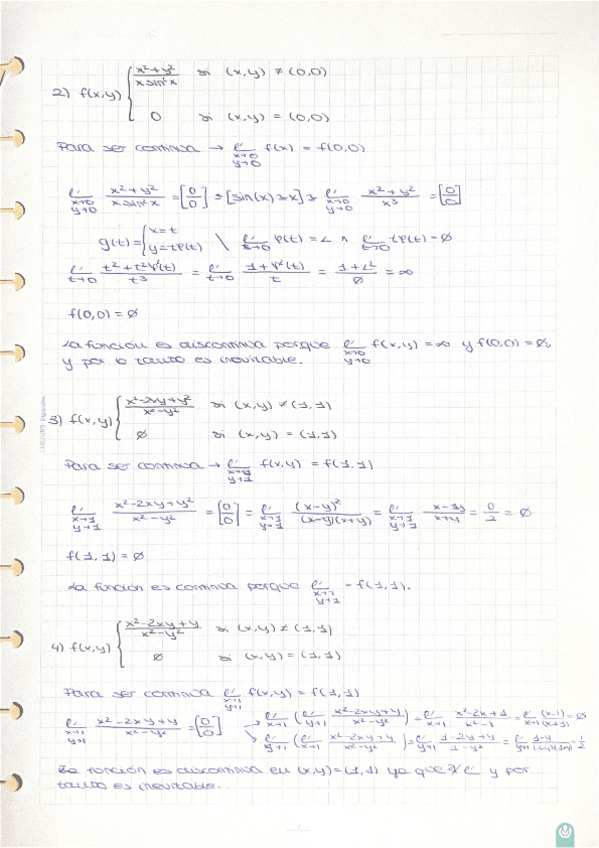 2) f(x,y) { x²+y² / x sin²x si (x,y) ≠ (0,0)
0 si (x,y) = (0,0)
Para ser continua → lí x→0 y→0 f(x) = f(0,0)
lí x→0 y→0 x²+y² / x sin²x = [0/0] = [sin(x) ≈ x] = lí x→0 y→0 x²+y² / x³ = [0/0]
g(t) = { x=t y=tφ(t) \ lí t→0 φ(t) = L ∧ lí t→0 tφ(t) = Ø
lí t→0 t²+t²φ²(t) / t³ = lí t→0 1+φ²(t) / t = 1+L² / Ø = ∞
f(0,0) = Ø
La función es discontinua porque lí x→0 y→0 f(x,y) = ∞ y f(0,0) = Ø,
y por lo tanto es inevitable.
3) f(x,y) { x²-2xy+y² / x²-y² si (x,y) ≠ (1,1)
Ø si (x,y) = (1,1)
Para ser continua → lí x→1 y→1 f(x,y) = f(1,1)
lí x→1 y→1 x²-2xy+y² / x²-y² = [0/0] = lí x→1 y→1 (x-y)² / (x-y)(x+y) = lí x→1 y→1 x-1y / x+y = 0/2 = Ø
f(1,1) = Ø
La función es continua porque lí x→1 y→1 = f(1,1).
4) f(x,y) { x²-2xy+y / x²-y² si (x,y) ≠ (1,1)
Ø si (x,y) = (1,1)
Para ser continua lí x→1 y→1 f(x,y) = f(1,1)
lí x→1 y→1 x²-2xy+y / x²-y² = [0/0] → lí x→1 (lí y→1 x²-2xy+y / x²-y²) = lí x→1 x²-2x+1 / x²-1 = lí x→1 (x-1) / (x+1) = Ø
↘ lí y→1 (lí x→1 x²-2xy+y / x²-y²) = lí y→1 1-2y+y / 1-y² = lí y→1 1-y / (1-y)(1+y) = 1/2
La función es discontinua en (x,y)=(1,1) ya que ∄ lí y por
tanto es inevitable.